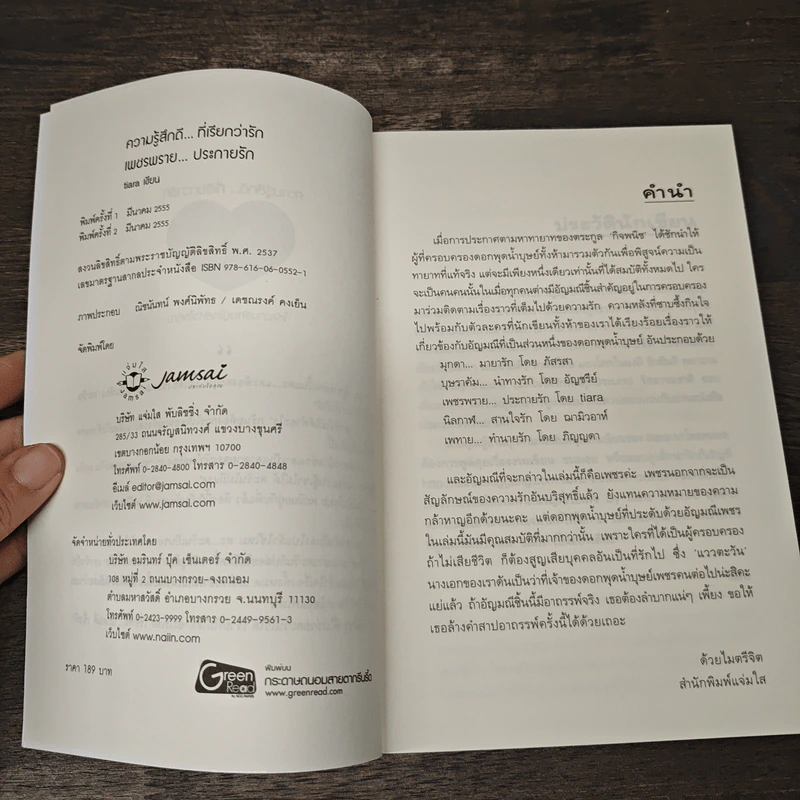 ความรู้สึกดี... ที่เรียกว่ารัก
เพชรพราย... ประกายรัก
tiara เขียน
พิมพ์ครั้งที่ 1 มีนาคม 2555
พิมพ์ครั้งที่ 2 มีนาคม 2555
สงวนลิขสิทธิ์ตามพระราชบัญญัติลิขสิทธิ์ พ.ศ. 2537
เลขมาตรฐานสากลประจำหนังสือ ISBN 978-616-06-0552-1
ภาพประกอบ ณิชนันทน์ พงศ์นิพัทธ / เดชณรงค์ คงเย็น
จัดพิมพ์โดย
แจ่มใส
jamsai
jamsai
บริษัท แจ่มใส พับลิชชิ่ง จำกัด
285/33 ถนนจรัญสนิทวงศ์ แขวงบางขุนศรี
เขตบางกอกน้อย กรุงเทพฯ 10700
โทรศัพท์ 0-2840-4800 โทรสาร 0-2840-4848
อีเมล์ editor@jamsai.com
เว็บไซต์ www.jamsai.com
จัดจำหน่ายทั่วประเทศโดย
บริษัท อมรินทร์ บุ๊ค เซ็นเตอร์ จำกัด
108 หมู่ที่ 2 ถนนบางกรวย-จงถนอม
ตำบลมหาสวัสดิ์ อำเภอบางกรวย จ.นนทบุรี 11130
โทรศัพท์ 0-2423-9999 โทรสาร 0-2449-9561-3
เว็บไซต์ www.naiin.com
ราคา 189 บาท
Green Read
พิมพ์บน
กระดาษถนอมสายตากรีนรี้ด
www.greenread.com
คำนำ
เมื่อการประกาศตามหาทายาทของตระกูล 'กิจพนิช' ได้ชักนำให้
ผู้ที่ครอบครองดอกพุดน้ำบุษย์ทั้งห้ามารวมตัวกันเพื่อพิสูจน์ความเป็น
ทายาทที่แท้จริง แต่จะมีเพียงหนึ่งเดียวเท่านั้นที่ได้สมบัติทั้งหมดไป ใคร
จะเป็นคนคนนั้นในเมื่อทุกคนต่างมีอัญมณีชิ้นสำคัญอยู่ในการครอบครอง
มาร่วมติดตามเรื่องราวที่เต็มไปด้วยความรัก ความหลังที่ซาบซึ้งกินใจ
ไปพร้อมกับตัวละครที่นักเขียนทั้งห้าของเราได้เรียงร้อยเรื่องราวให้
เกี่ยวข้องกับอัญมณีที่เป็นส่วนหนึ่งของดอกพุดน้ำบุษย์ อันประกอบด้วย
มุกดา... มายารัก โดย ภัสรสา
บุษราคัม... นำทางรัก โดย อัญชรีย์
เพชรพราย... ประกายรัก โดย tiara
นิลกาฬ... สานใจรัก โดย ฌามิวอาห์
เพทาย... ทำนายรัก โดย ภิญญดา
และอัญมณีที่จะกล่าวในเล่มนี้ก็คือเพชรค่ะ เพชรนอกจากจะเป็น
สัญลักษณ์ของความรักอันบริสุทธิ์แล้ว ยังแทนความหมายของความ
กล้าหาญอีกด้วยนะคะ แต่ดอกพุดน้ำบุษย์ที่ประดับด้วยอัญมณีเพชร
ในเล่มนี้มันมีคุณสมบัติที่มากกว่านั้น เพราะใครที่ได้เป็นผู้ครอบครอง
ถ้าไม่เสียชีวิต ก็ต้องสูญเสียบุคคลอันเป็นที่รักไป ซึ่ง 'แววตะวัน'
นางเอกของเราดันเป็นว่าที่เจ้าของดอกพุดน้ำบุษย์เพชรคนต่อไปน่ะสิคะ
แย่แล้ว ถ้าอัญมณีชิ้นนี้มีอาถรรพ์จริง เธอต้องลำบากแน่ๆ เพี้ยง ขอให้
เธอล้างคำสาปอาถรรพ์ครั้งนี้ได้ด้วยเถอะ
ด้วยไมตรีจิต
สำนักพิมพ์แจ่มใส